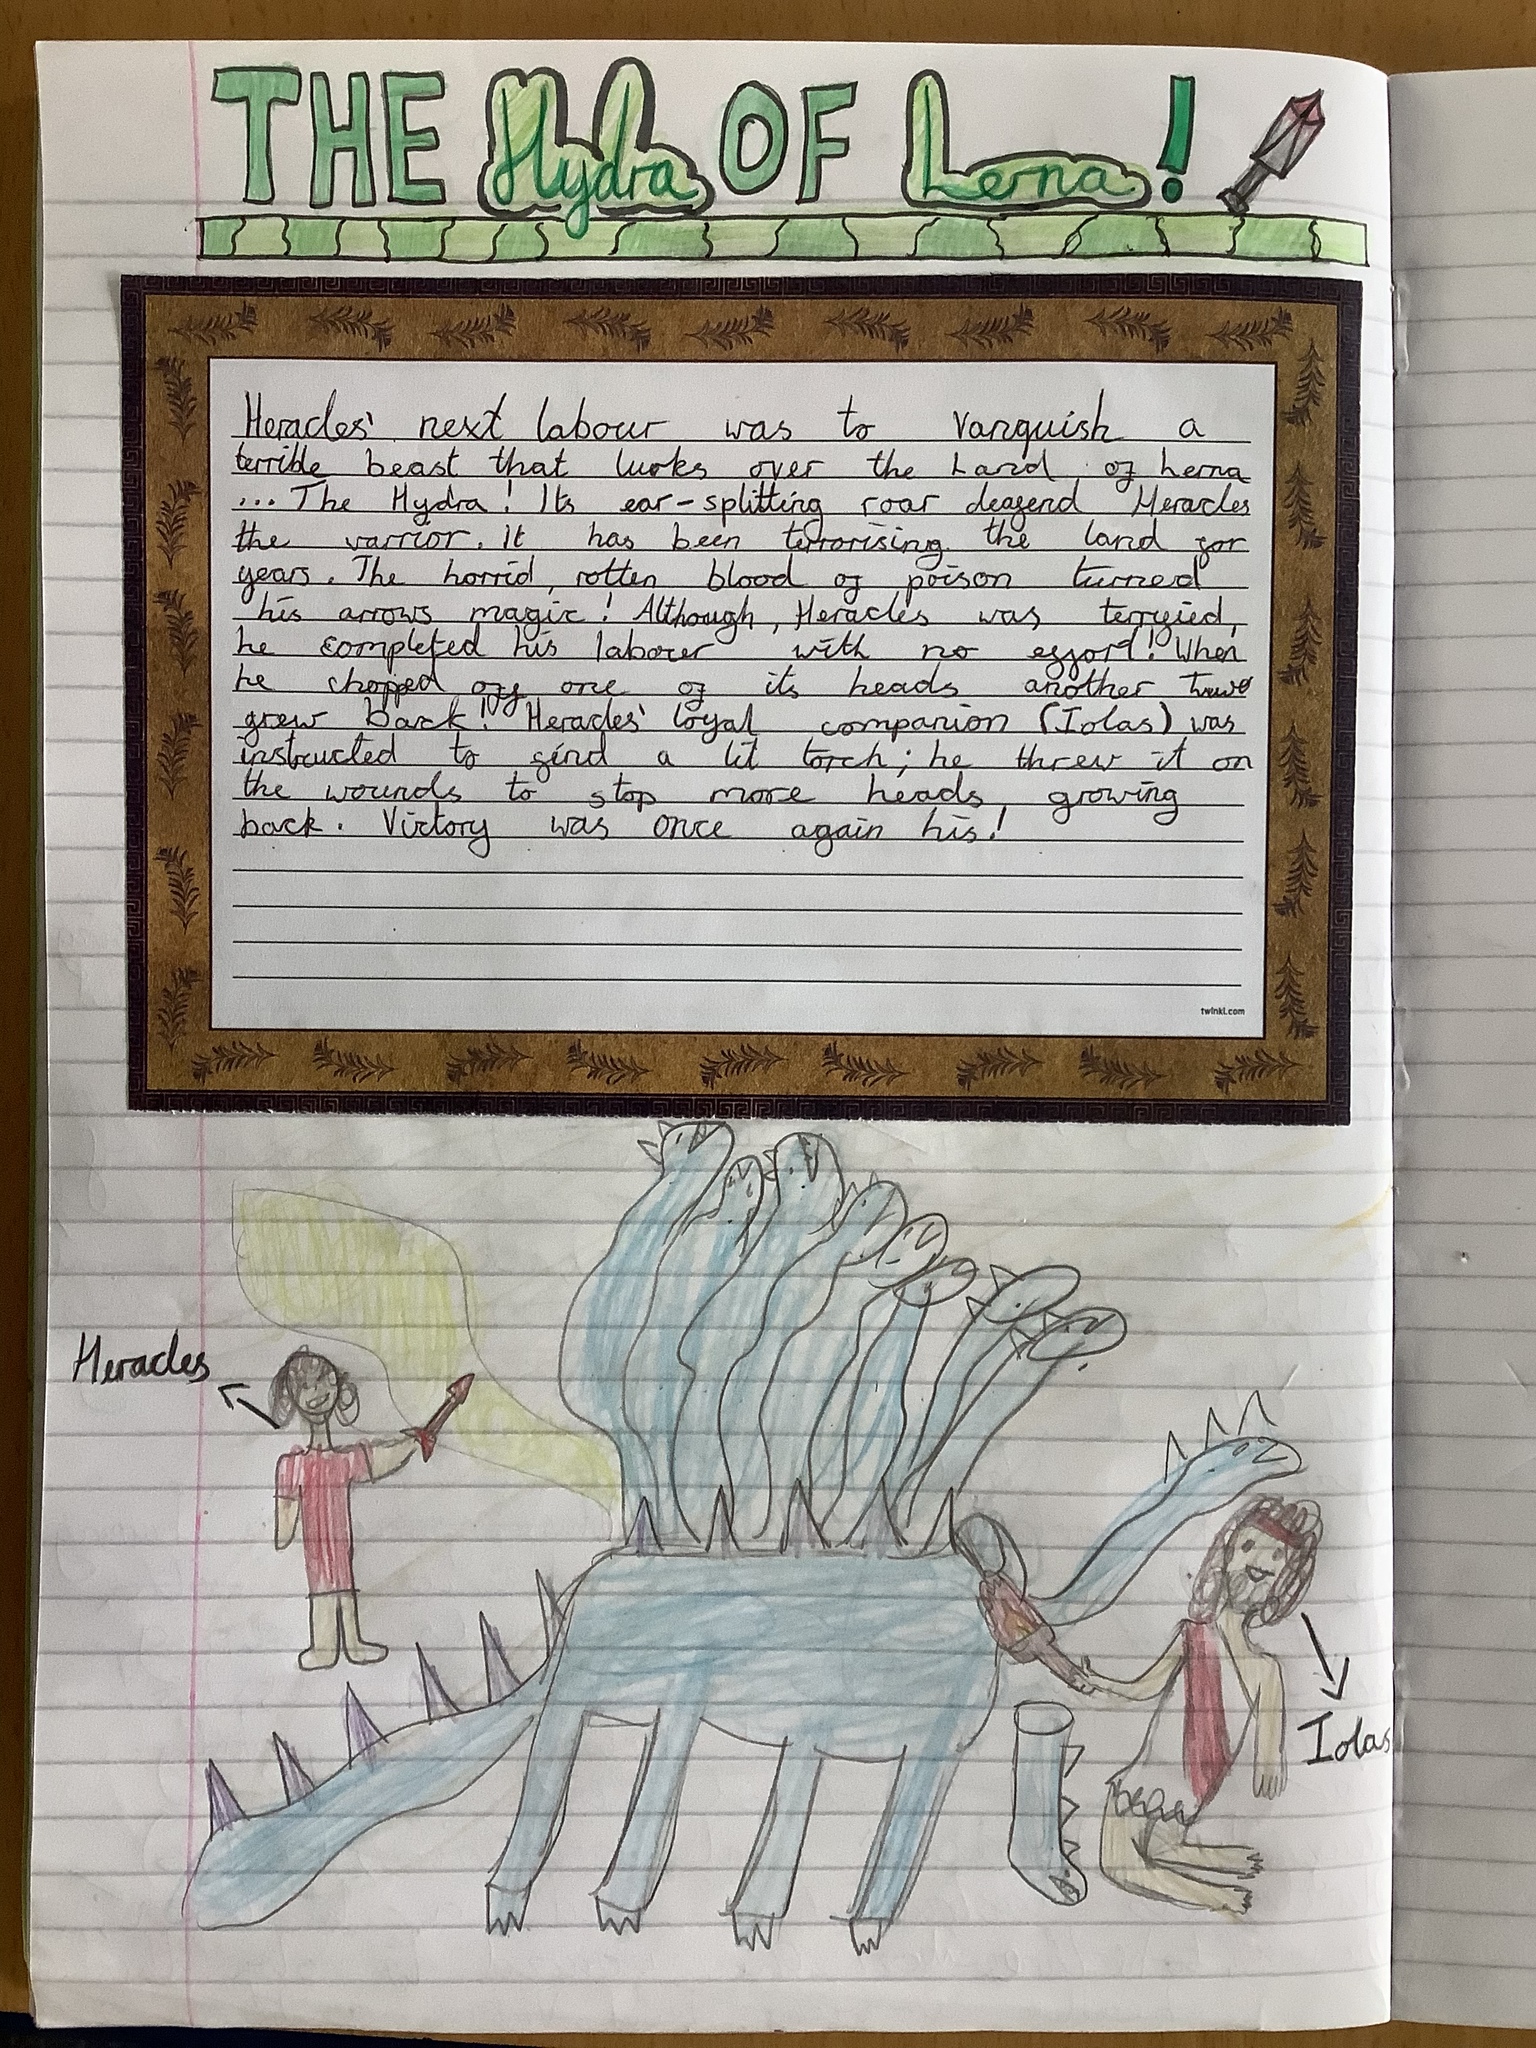 THE Hydra OF Lerna!
Heracles' next labour was to vanquish a
terrible beast that lurks over the Land of Lerna
... The Hydra! Its ear-splitting roar deafend Heracles
the warrior. It has been terrorising the land for
years. The horrid, rotten blood of poison turned
his arrows magic! Although, Heracles was terryied,
he completed his labour with no effort! When
he chopped off one of its heads another
grew back! Heracles' loyal companion (Iolas) was
instructed to find a lit torch; he threw it on
the wounds to stop more heads, growing
back. Victory was once again his!
twinkl.com
Heracles
Iolas